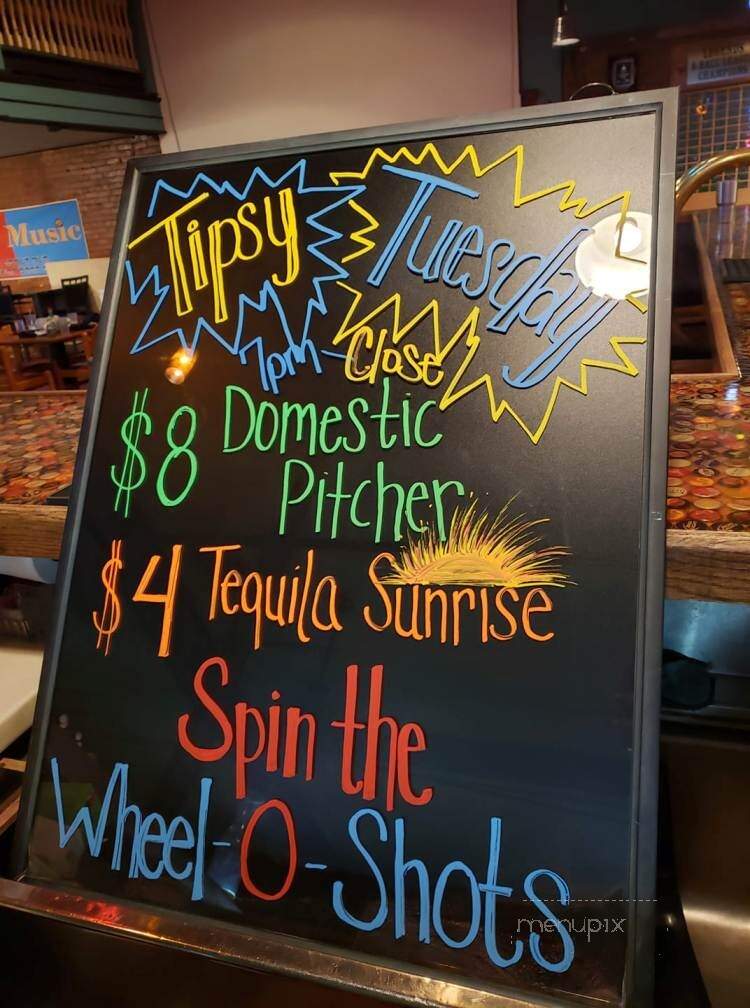 Tipsy Tuesday
7pm - Close
$8 Domestic
Pitcher
$4 Tequila Sunrise
Spin the
Wheel-O-Shots
Music
menupix